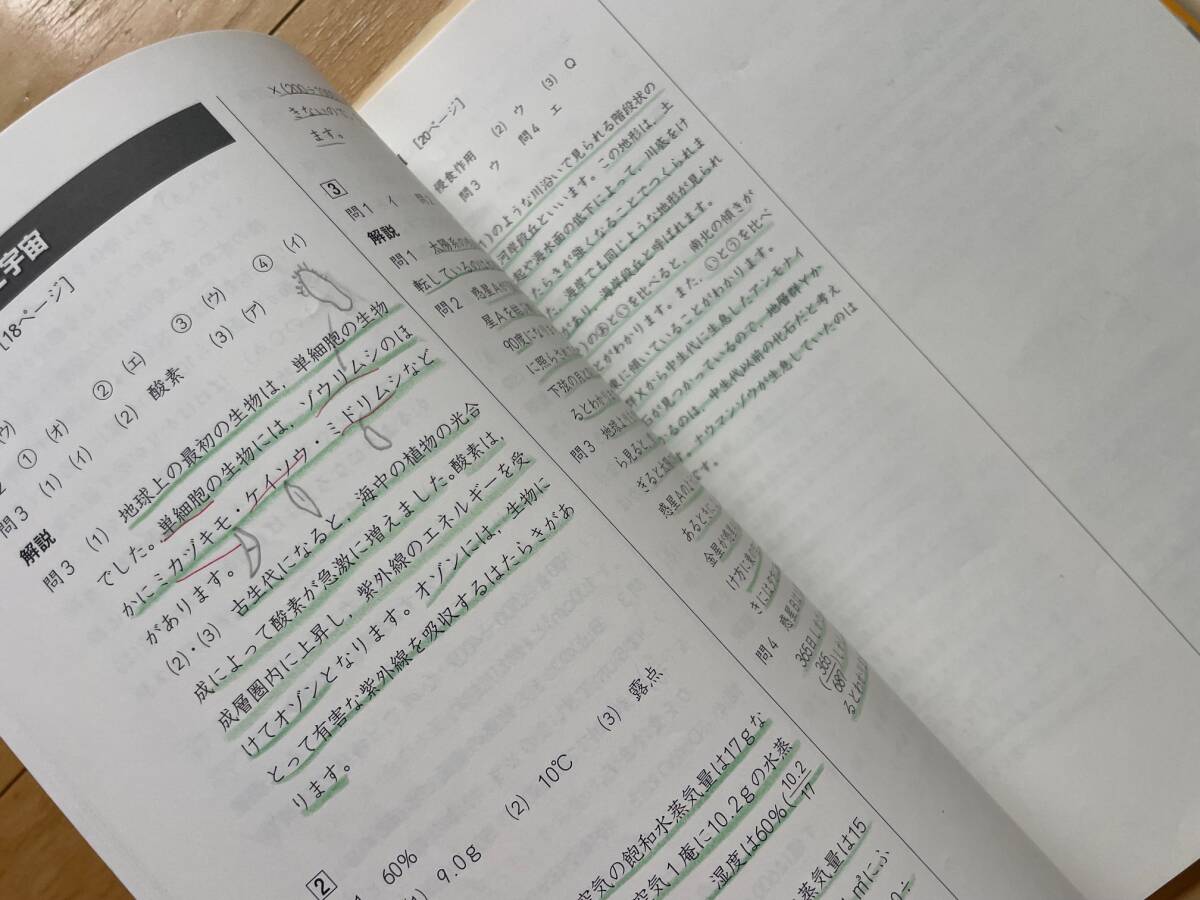 宇宙
[18ページ]
① (オ) ② (エ) ③ (ウ) ④ (イ)
問3 (1) (イ) (2) 酸素 (3) (ア)
解説
問3 (1) 地球上の最初の生物は，単細胞の生物
でした。単細胞の生物には，ゾウリムシのほ
かにミカヅキモ・ケイソウ・ミドリムシなど
があります。
(2)・(3) 古生代になると，海中の植物の光合
成によって酸素が急激に増えました。酸素は，
成層圏内に上昇し，紫外線のエネルギーを受
けてオゾンとなります。オゾンには，生物に
とって有害な紫外線を吸収するはたらきがあ
ります。
2
60% (2) 10℃ (3) 露点
9.0g
空気の飽和水蒸気量は17gな
空気1庵に10.2gの水蒸
湿度は60%(10.2/17
蒸気量は15
㎥にふ
きないので
ます。
3
問1 イ
解説
問1 太陽系の
転しているの
問2 惑星Aが
星Aを
90度にな
に照らさ
下弦の月と
るとわか
問3 地球よ
ら見ると，
ぎると太
惑星Aの
あるときに
金星が
け方に東の
問4 惑星B
365日
365
687
るとわか
[20ページ]
侵食作用 (2) ウ (3) Q
問3 ウ 問4 エ
のような川沿いで見られる階段状の
河岸段丘といいます。この地形は，土
起や海水面の低下によって，川底をけ
たらきが強くなることでつくられま
た，海岸でも同じような地形が見られ
があり，海岸段丘と呼ばれます。
のあといを比べると，南北の傾きが
とがわかります。また，いとうを比べ
東に傾いていることがわかります。
群Xから中生代に生息したアンモナイ
石が見つかっているので，地層群Yか
るのは，中生代以前の化石だと考え
ナウマンゾウが生息していたのは
です。